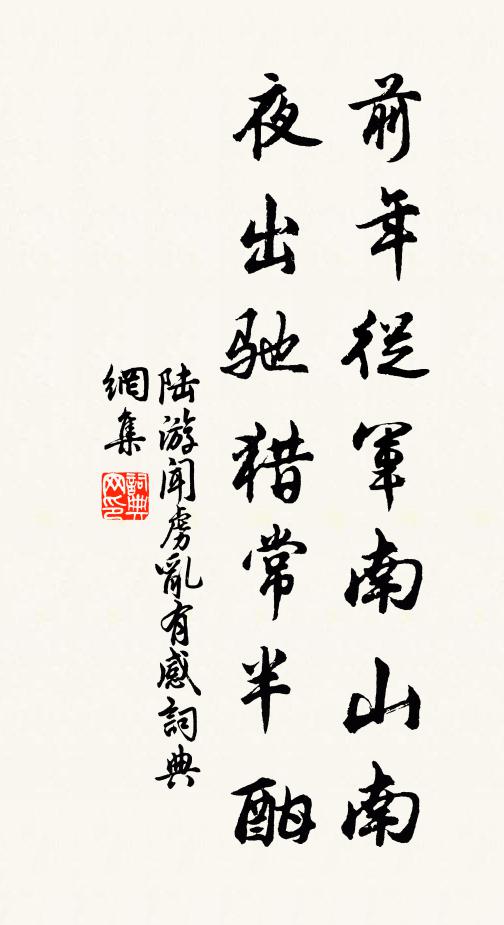 前年從軍南山南
夜出馳猎常半酣
陆游闻虏亂有感詞典
網集
詞典网印